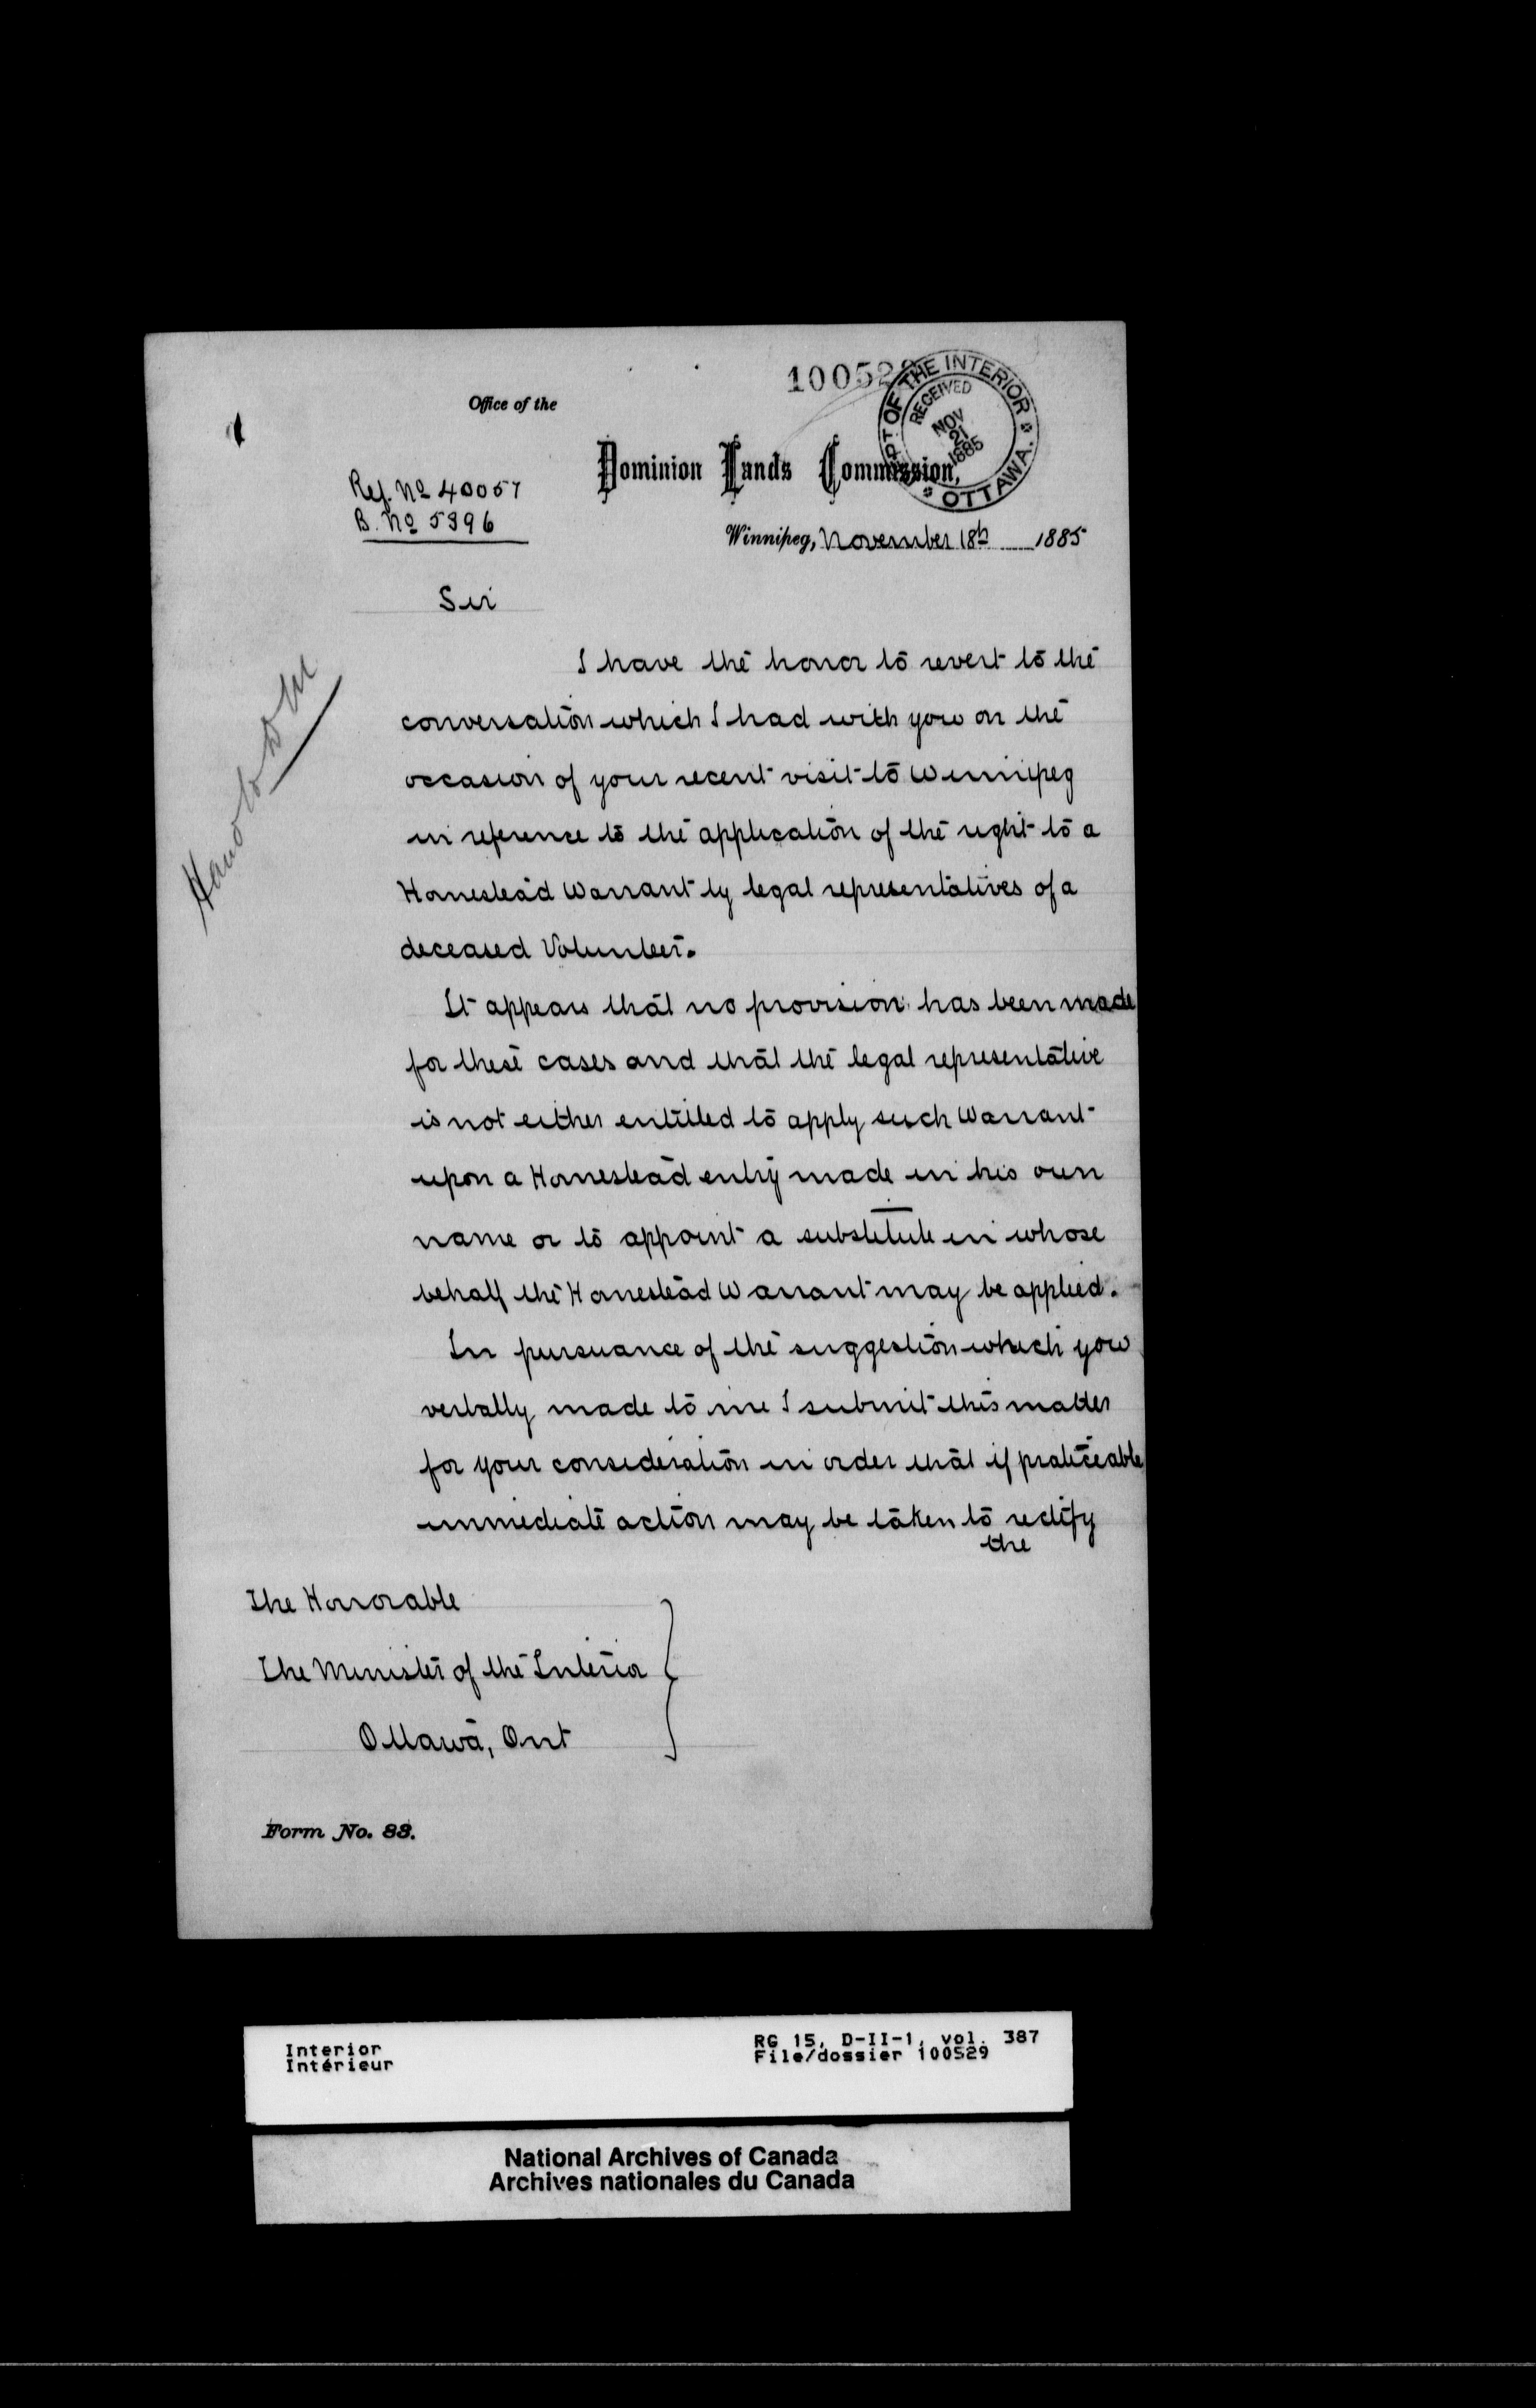 100529
DEPT OF THE INTERIOR
RECEIVED
NOV
21
1885
OTTAWA.
Office of the
Dominion Lands Commission,
Ref. No 40057
B. No 5396
Winnipeg, November 18th 1885
Sir
I have the honor to revert to the
conversation which I had with you on the
occasion of your recent visit to Winnipeg
in reference to the application of the right to a
Homestead Warrant by legal representatives of a
deceased Volunteer.
It appears that no provision has been made
for these cases and that the legal representative
is not either entitled to apply such Warrant
upon a Homestead entry made in his own
name or to appoint a substitute in whose
behalf the Homestead Warrant may be applied.
In pursuance of the suggestion which you
verbally made to me I submit this matter
for your consideration in order that if praticeable
immediate action may be taken to rectify
the
The Honorable
The Minister of the Interior
Ottawa, Ont
Form No. 83.
Interior
Intérieur
RG 15, D-II-1, vol. 387
File/dossier 100529
National Archives of Canada
Archives nationales du Canada